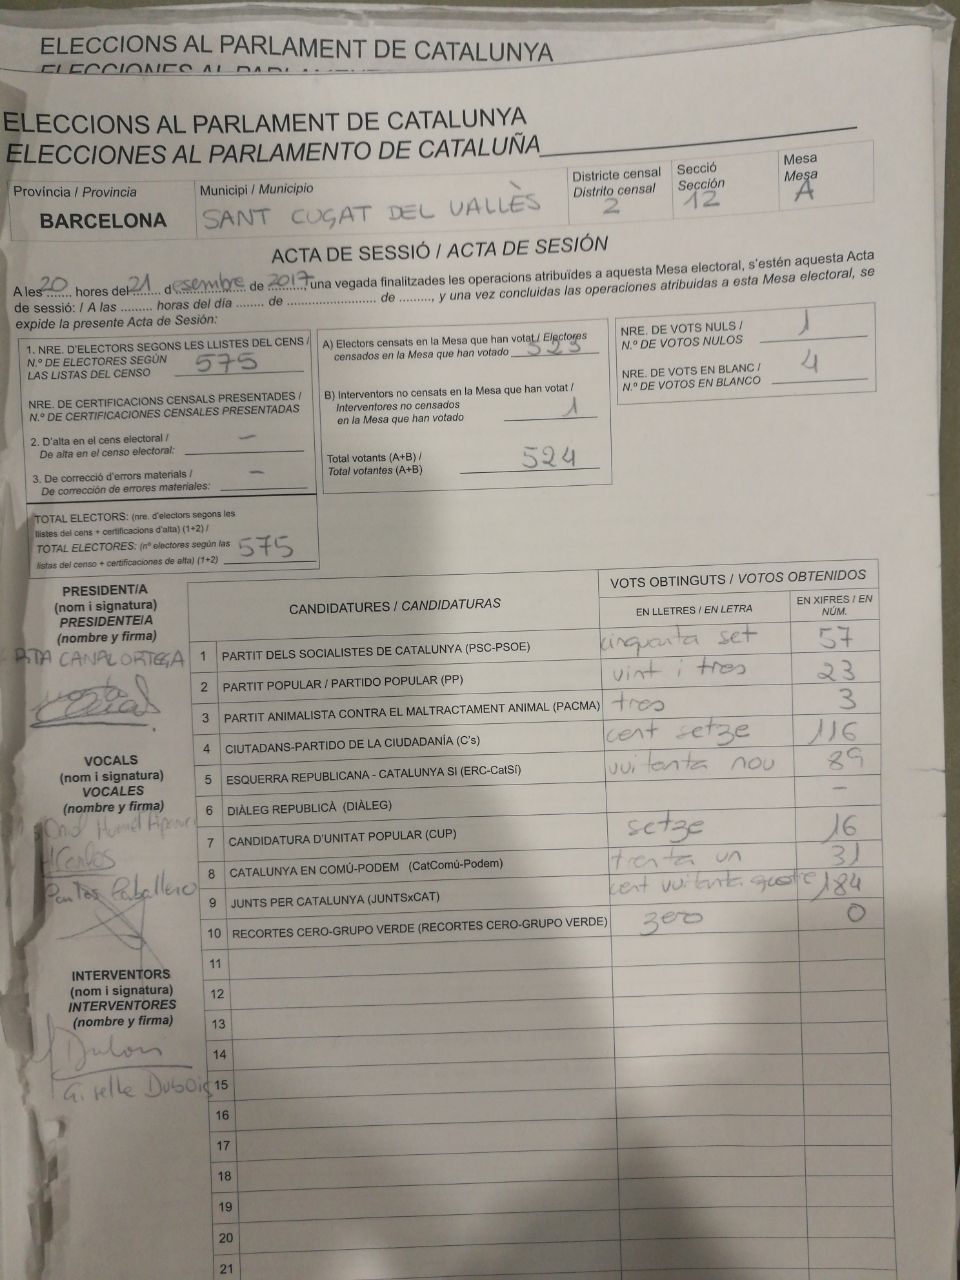 ELECCIONS AL PARLAMENT DE CATALUNYA
ELECCIONS AL PARLAMENT DE CATALUNYA
ELECCIONES AL PARLAMENTO DE CATALUÑA
Província / Provincia
BARCELONA
Municipi / Municipio
SANT CUGAT DEL VALLÈS
Districte censal
Distrito censal
2
Secció
Sección
12
Mesa
Mesa
A
ACTA DE SESSIÓ / ACTA DE SESIÓN
A les 20 hores del 21 desembre de 2017, una vegada finalitzades les operacions atribuïdes a aquesta Mesa electoral, s'estén aquesta Acta
de sessió: / A las ......... horas del día ........ de ........................... de ........., y una vez concluidas las operaciones atribuidas a esta Mesa electoral, se
expide la presente Acta de Sesión:
1. NRE. D'ELECTORS SEGONS LES LLISTES DEL CENS /
N.º DE ELECTORES SEGÚN
LAS LISTAS DEL CENSO 575
NRE. DE CERTIFICACIONS CENSALS PRESENTADES /
N.º DE CERTIFICACIONES CENSALES PRESENTADAS
2. D'alta en el cens electoral /
De alta en el censo electoral: –
3. De correcció d'errors materials /
De corrección de errores materiales: –
TOTAL ELECTORS: (nre. d'electors segons les
llistes del cens + certificacions d'alta) (1+2) /
TOTAL ELECTORES: (nº electores según las
listas del censo + certificaciones de alta) (1+2) 575
A) Electors censats en la Mesa que han votat / Electores
censados en la Mesa que han votado 523
B) Interventors no censats en la Mesa que han votat /
Interventores no censados
en la Mesa que han votado 1
Total votants (A+B) /
Total votantes (A+B) 524
NRE. DE VOTS NULS /
N.º DE VOTOS NULOS 1
NRE. DE VOTS EN BLANC /
N.º DE VOTOS EN BLANCO 4
PRESIDENT/A
(nom i signatura)
PRESIDENTE/A
(nombre y firma)
CANAL ORTEGA
VOCALS
(nom i signatura)
VOCALES
(nombre y firma)
INTERVENTORS
(nom i signatura)
INTERVENTORES
(nombre y firma)
Giselle Dubois
CANDIDATURES / CANDIDATURAS
VOTS OBTINGUTS / VOTOS OBTENIDOS
EN LLETRES / EN LETRA
EN XIFRES / EN NÚM.
1 PARTIT DELS SOCIALISTES DE CATALUNYA (PSC-PSOE) cinquanta set 57
2 PARTIT POPULAR / PARTIDO POPULAR (PP) vint i tres 23
3 PARTIT ANIMALISTA CONTRA EL MALTRACTAMENT ANIMAL (PACMA) tres 3
4 CIUTADANS-PARTIDO DE LA CIUDADANÍA (C's) cent setze 116
5 ESQUERRA REPUBLICANA - CATALUNYA SI (ERC-CatSí) vuitanta nou 89
6 DIÀLEG REPUBLICÀ (DIÀLEG) –
7 CANDIDATURA D'UNITAT POPULAR (CUP) setze 16
8 CATALUNYA EN COMÚ-PODEM (CatComú-Podem) trenta un 31
9 JUNTS PER CATALUNYA (JUNTSxCAT) cent vuitanta quatre 184
10 RECORTES CERO-GRUPO VERDE (RECORTES CERO-GRUPO VERDE) zero 0
11
12
13
14
15
16
17
18
19
20
21